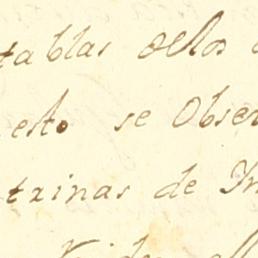 tablas dellos
esto se Obser
trinas de In